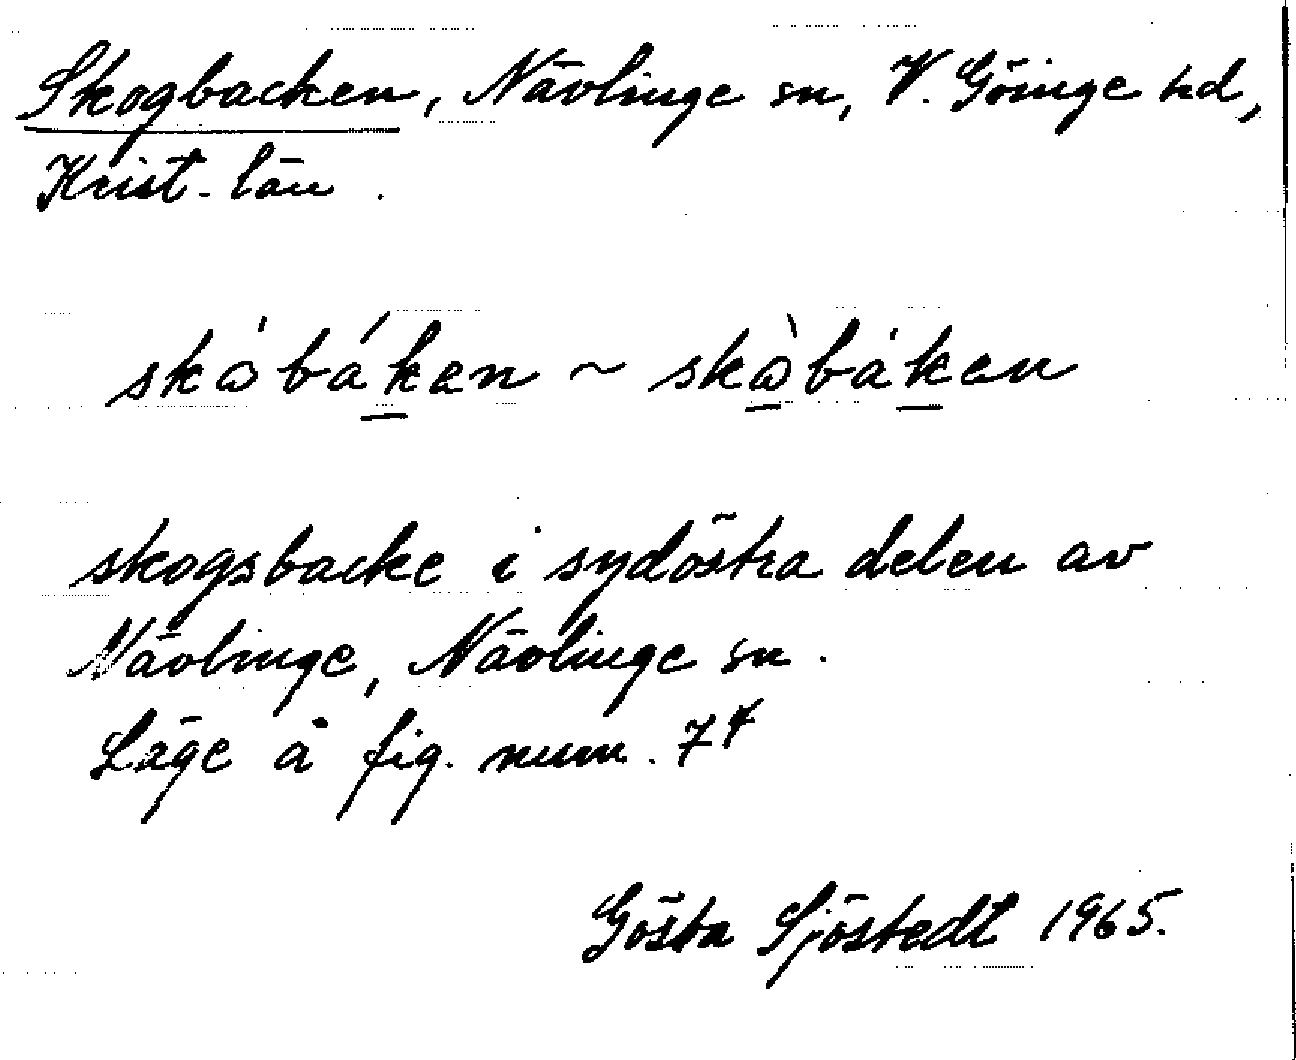 Skogbacken, Nävlinge sn, V. Göinge hd,
Krist. län.
skɷ́báken ~ skɷ̀báken
skogsbacke i sydöstra delen av
Nävlinge, Nävlinge sn.
Läge å fig. num. 74
Gösta Sjöstedt 1965.